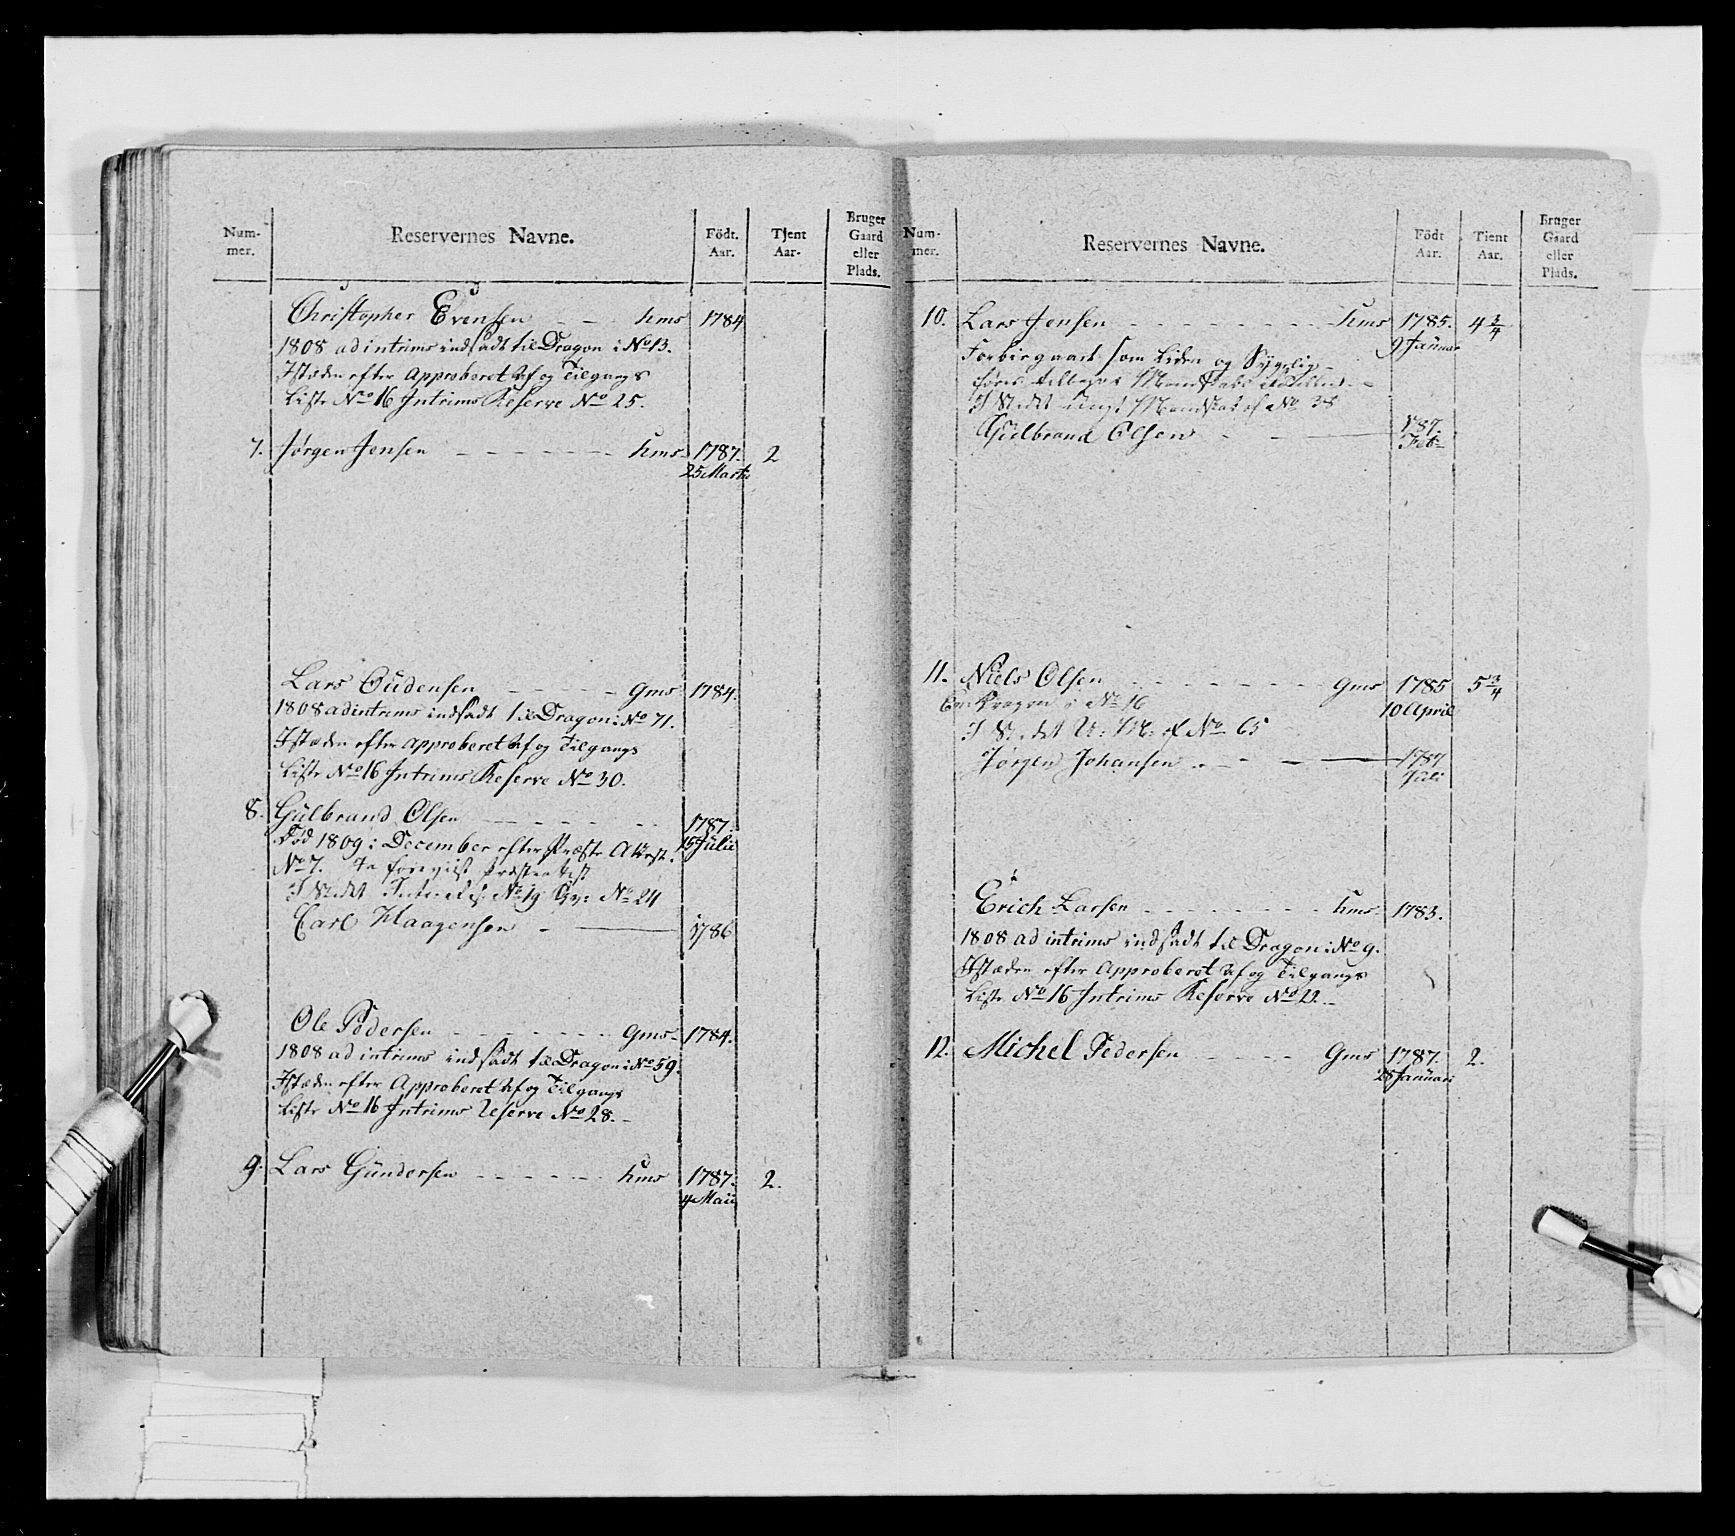 Num-
mer.
Reservernes Navne.
Födt.
Aar.
Tjent
Aar.
Bruger
Gaard
eller
Plads.
Christopher Evensen - - - hms 1784
1808 ad intrims indsadt til Dragon i No 13.
Istæden efter Approberet Af og Tilgangs
Liste No 16 Intrims Reserve No 25.
7. Jørgen Jensen - - - - - - - hms 1787. 2
25 Marti
Lars Gudensen - - - - - gms 1784.
1808 ad intrims indsadt til Dragon i No 71.
Istæden efter Approberet Af og Tilgangs
Liste No 16 Intrims Reserve No 30.
8. Gulbrand Olsen - - - - - - 1787.
Død 1809 i December efter Præste Attest. 15 Julii
No 7.
I Stedet No 19 No 24
Carl Haagensen - 1786
Ole Pedersen - - - - - - - gms - 1784.
1808 ad intrims indsadt til Dragon i No 59.
Istæden efter Approberet Af og Tilgangs
Liste No 16 Intrims Reserve No 28. -
9. Lars Gundersen - - - - - - hms 1787. 2.
4 Maii
Num-
mer.
Reservernes Navne.
Födt
Aar.
Tient
Aar.
Bruger
Gaard
eller
Plads.
10. Lars Jensen - - - - - - - - - hms 1785. 4 3/4
9 Januar
Forbigaaet som Liden og Sygelig -
I Stedet Ungt Mandskab af No 38
Gulbrand Olsen - - 1787.
Feb
11. Niels Olsen - - - - - - - - gms 1785 5 3/4
Dragon i No 16 10 April
I Stedet U: M: af No 65
Jørgen Johansen - - - - 1787
Juli
Erich Larsen - - - - - - - hms. 1783.
1808 ad intrims indsadt til Dragon i No 9.
Istæden efter Approberet Af og Tilgangs
Liste No 16 Intrims Reserve No 22. -
12. Michel Pedersen - - - - - gms 1787. 2.
28 Januari